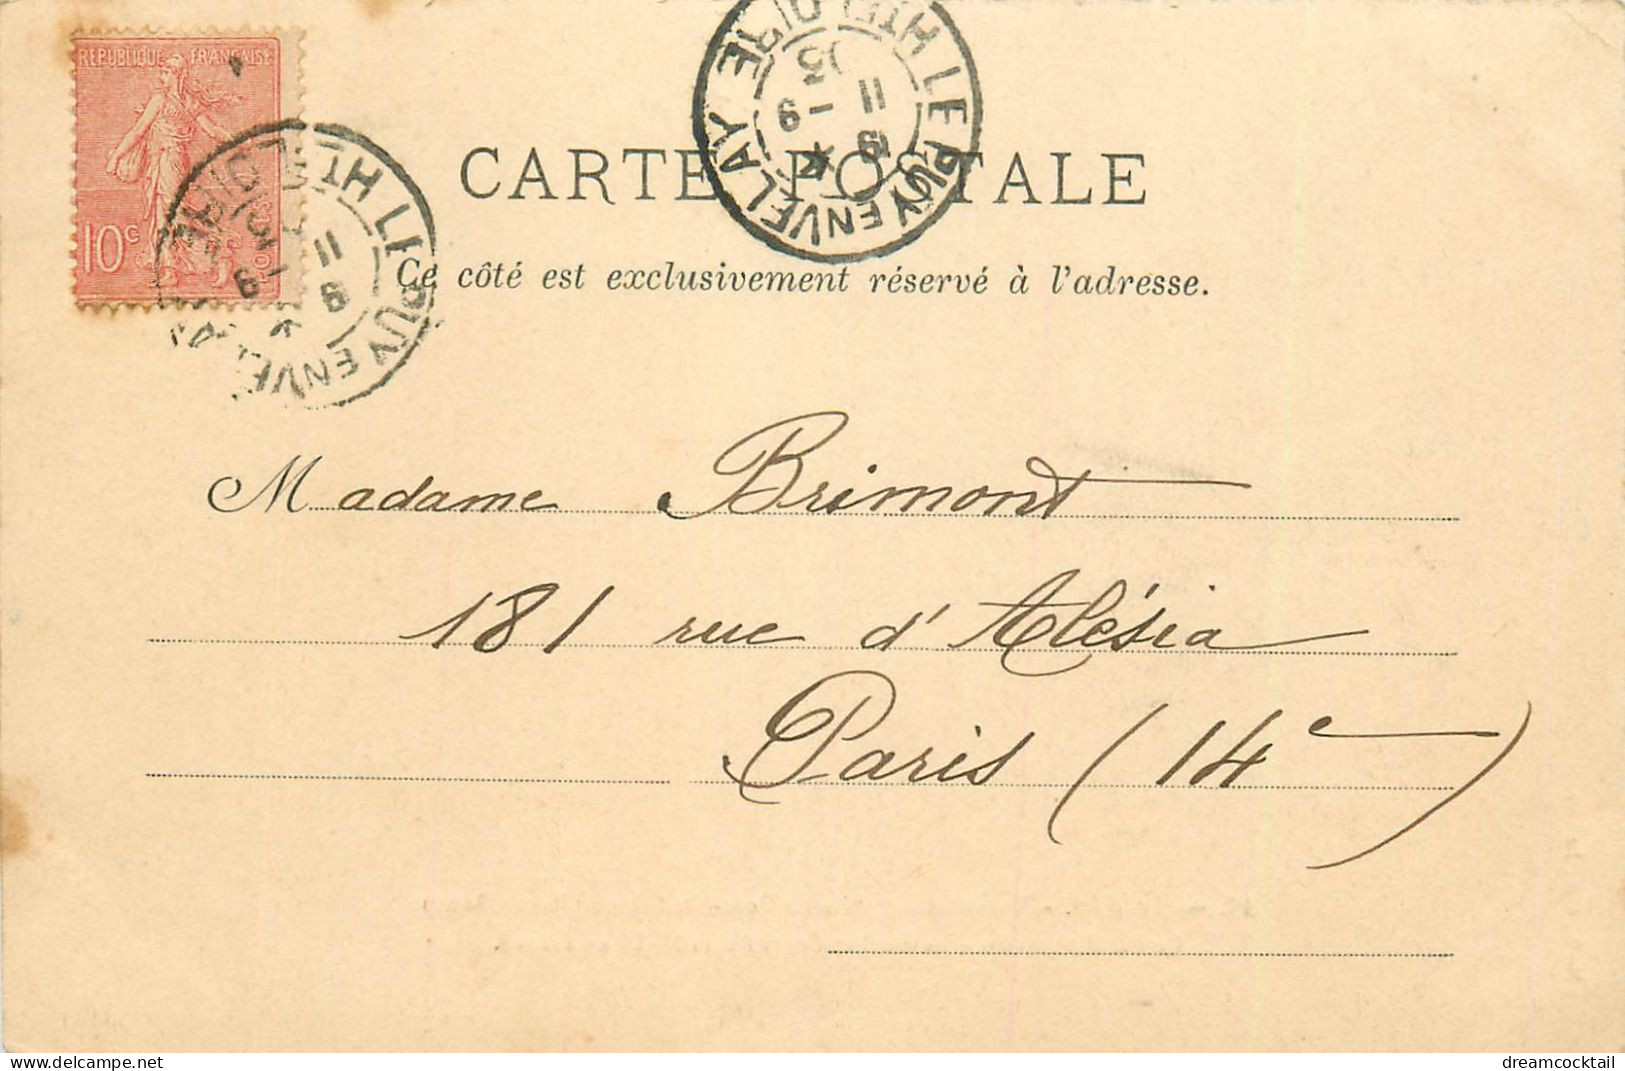 REPUBLIQUE FRANÇAISE
10c
LE PUY EN VELAY HTE LOIRE
11
9 - 9
03
CARTE POSTALE
Ce côté est exclusivement réservé à l'adresse.
Madame Brimont
181 rue d'Alésia
Paris (14e)
delcampe.net
dreamcocktail